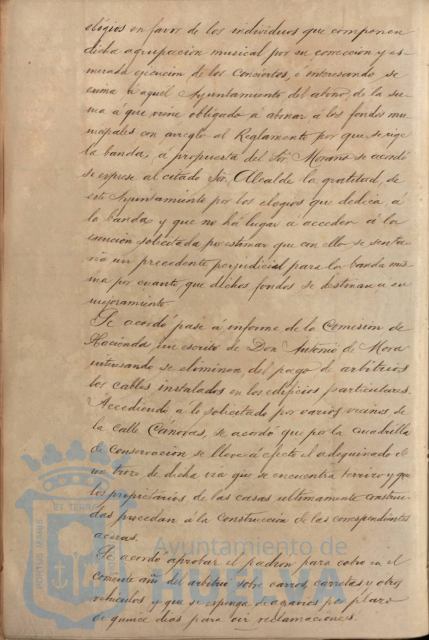 elógios en favor de los individuos que componen
dicha agrupación musical por su corrección y es-
merada ejecución de los Conciertos, é interesando se
exima á aquel Ayuntamiento del abono de la su-
ma á que viene obligado á abonar á los fondos mu-
nicipales con arreglo al Reglamento por que se rige
la banda, á propuesta del Sor. Morano se acordó
se exprese al citado Sor. Alcalde la gratitud de
este Ayuntamiento por los elogios que dedica á
la banda y que no há lugar á acceder á la
exención solicitada por estimar que con ello se senta-
ría un precedente perjudicial para la banda mis-
ma por cuanto que dichos fondos se destinan á su
mejoramiento
Se acordó pase á informe de la Comisión de
Hacienda un escrito de Don Antonio de Mora
interesando se eliminen del pago de arbitrios
los cables instalados en los edificios particulares.
Accediendo á lo solicitado por varios vecinos de
la Calle Cánovas, se acordó que por la cuadrilla
de Conservación se lleve á efecto el adoquinado de
un trozo de dicha vía que se encuentra terrizo y que
los propietarios de las casas ultimamente construi-
das procedan á la construcción de las correspondientes
aceras.
Se acordó aprobar el padrón para cobro en el
corriente año del arbitrio sobre carros, carretas y otros
vehículos y que se exponga de agravios por plazo
de quince días para oir reclamaciones.
PORTUS MARIS
ET TERRAE
Ayuntamiento de
HUELVA